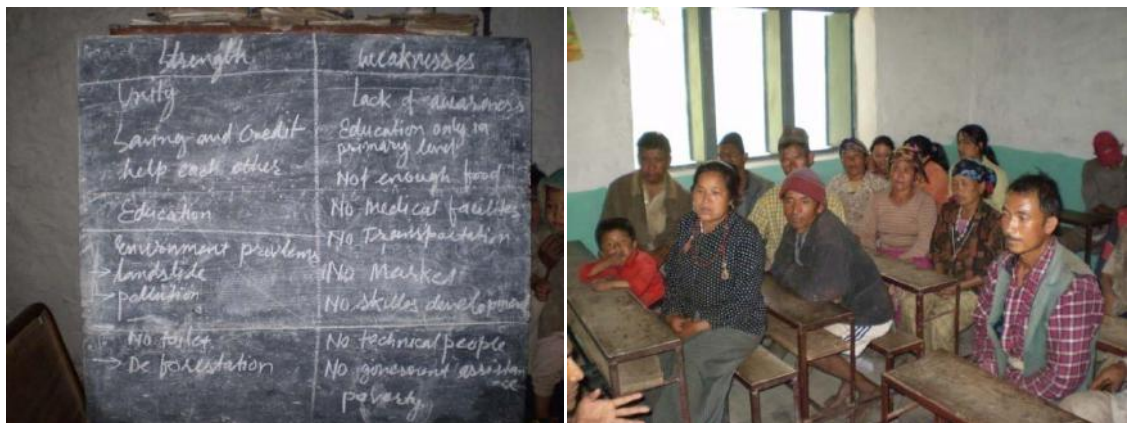 Strength
Unity
Saving and Credit
help each other
Education
Envirnment problems
→ landslide
→ pollution
No toilet
→ De forestation
Weaknesses
Lack of awarness
Education only in
primary level
Not enough food
No Medical facilites
No Transportation
No Market
No skilles development
No technical people
No goverount assistan
-ce
poverty